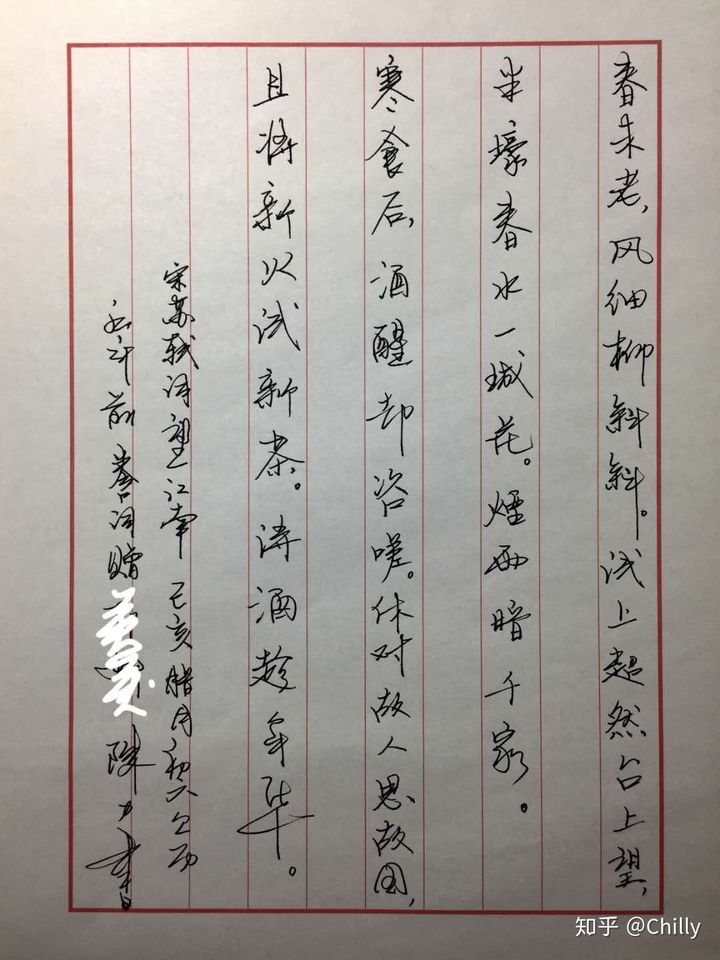 春未老，风细柳斜斜。试上超然台上望，
半壕春水一城花。烟雨暗千家。
寒食后，酒醒却咨嗟。休对故人思故国，
且将新火试新茶。诗酒趁年华。
宋苏轼词望江南 己亥腊月初六
年前 書词赠 陈力書
知乎 @Chilly